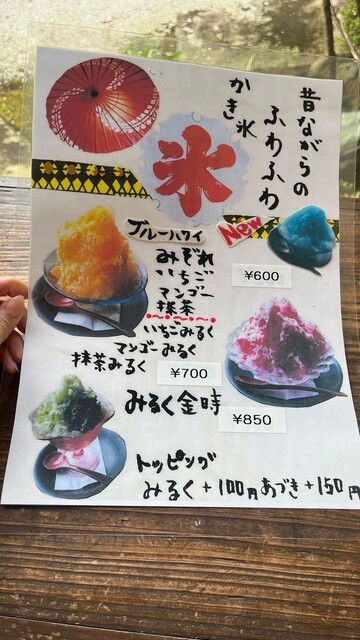 昔ながらの
ふわふわ
かき氷
氷
New
ブルーハワイ
みぞれ
いちご
マンゴー
抹茶
¥600
いちごみるく
マンゴーみるく
抹茶みるく
¥700
みるく金時
¥850
トッピング
みるく+100円 あづき+150円